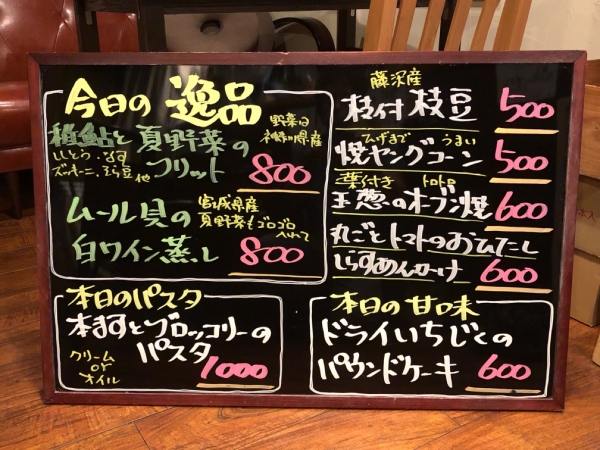 今日の 逸品
稚鮎と 夏野菜の
野菜は
神奈川県産
ししとう・なす
ズッキーニ、そら豆 他
フリット 800
ムール貝の
宮城県産
夏野菜もゴロゴロ
入れて
白ワイン蒸し 800
藤沢産
枝付 枝豆 500
ひげまで うまい
焼ヤングコーン 500
葉付き トロトロ
玉葱のオーブン焼 600
丸ごとトマトのおひたし
しらすあんかけ 600
本日のパスタ
本ますとブロッコリーの
パスタ
クリーム
or
オイル
1000
本日の甘味
ドライいちじくの
パウンドケーキ 600